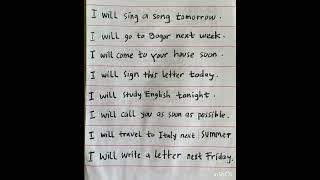 I will sing a song tomorrow.
I will go to Bogor next week.
I will come to your house soon.
I will sign this letter today.
I will study English tonight.
I will call you as soon as possible.
I will travel to Italy next summer
I will write a letter next Friday.